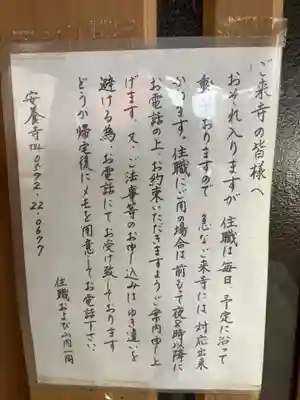 ご来寺の皆様へ
おそれ入りますが 住職は毎日、予定に沿って
おりますので 急なご来寺には 対応出来
ます。住職にご用の場合は前もって夜8時以降に
お電話の上、お約束いただきますようご案内申し上
げます。又、ご法事等のお申し込みはゆき違いを
避ける為、お電話にてお受け致しております
どうか帰宅後にメモを用意してお電話下さい。
住職および山内一同
安養寺 TEL 0572-22-0677